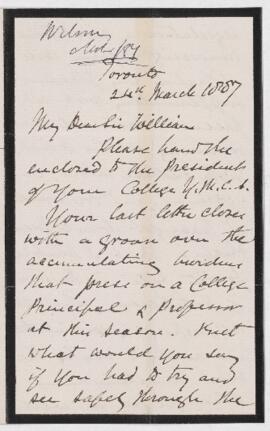 Toronto
24th March 1887
My Dear Sir William
Please hand the
enclosed to the President
of your College Y.M.C.A.
Your last letter closes
with a groan over the
accumulating burdens
that press on a College
Principal & Professor
at this season. But
what would you say
if you had to try and
see safely through the